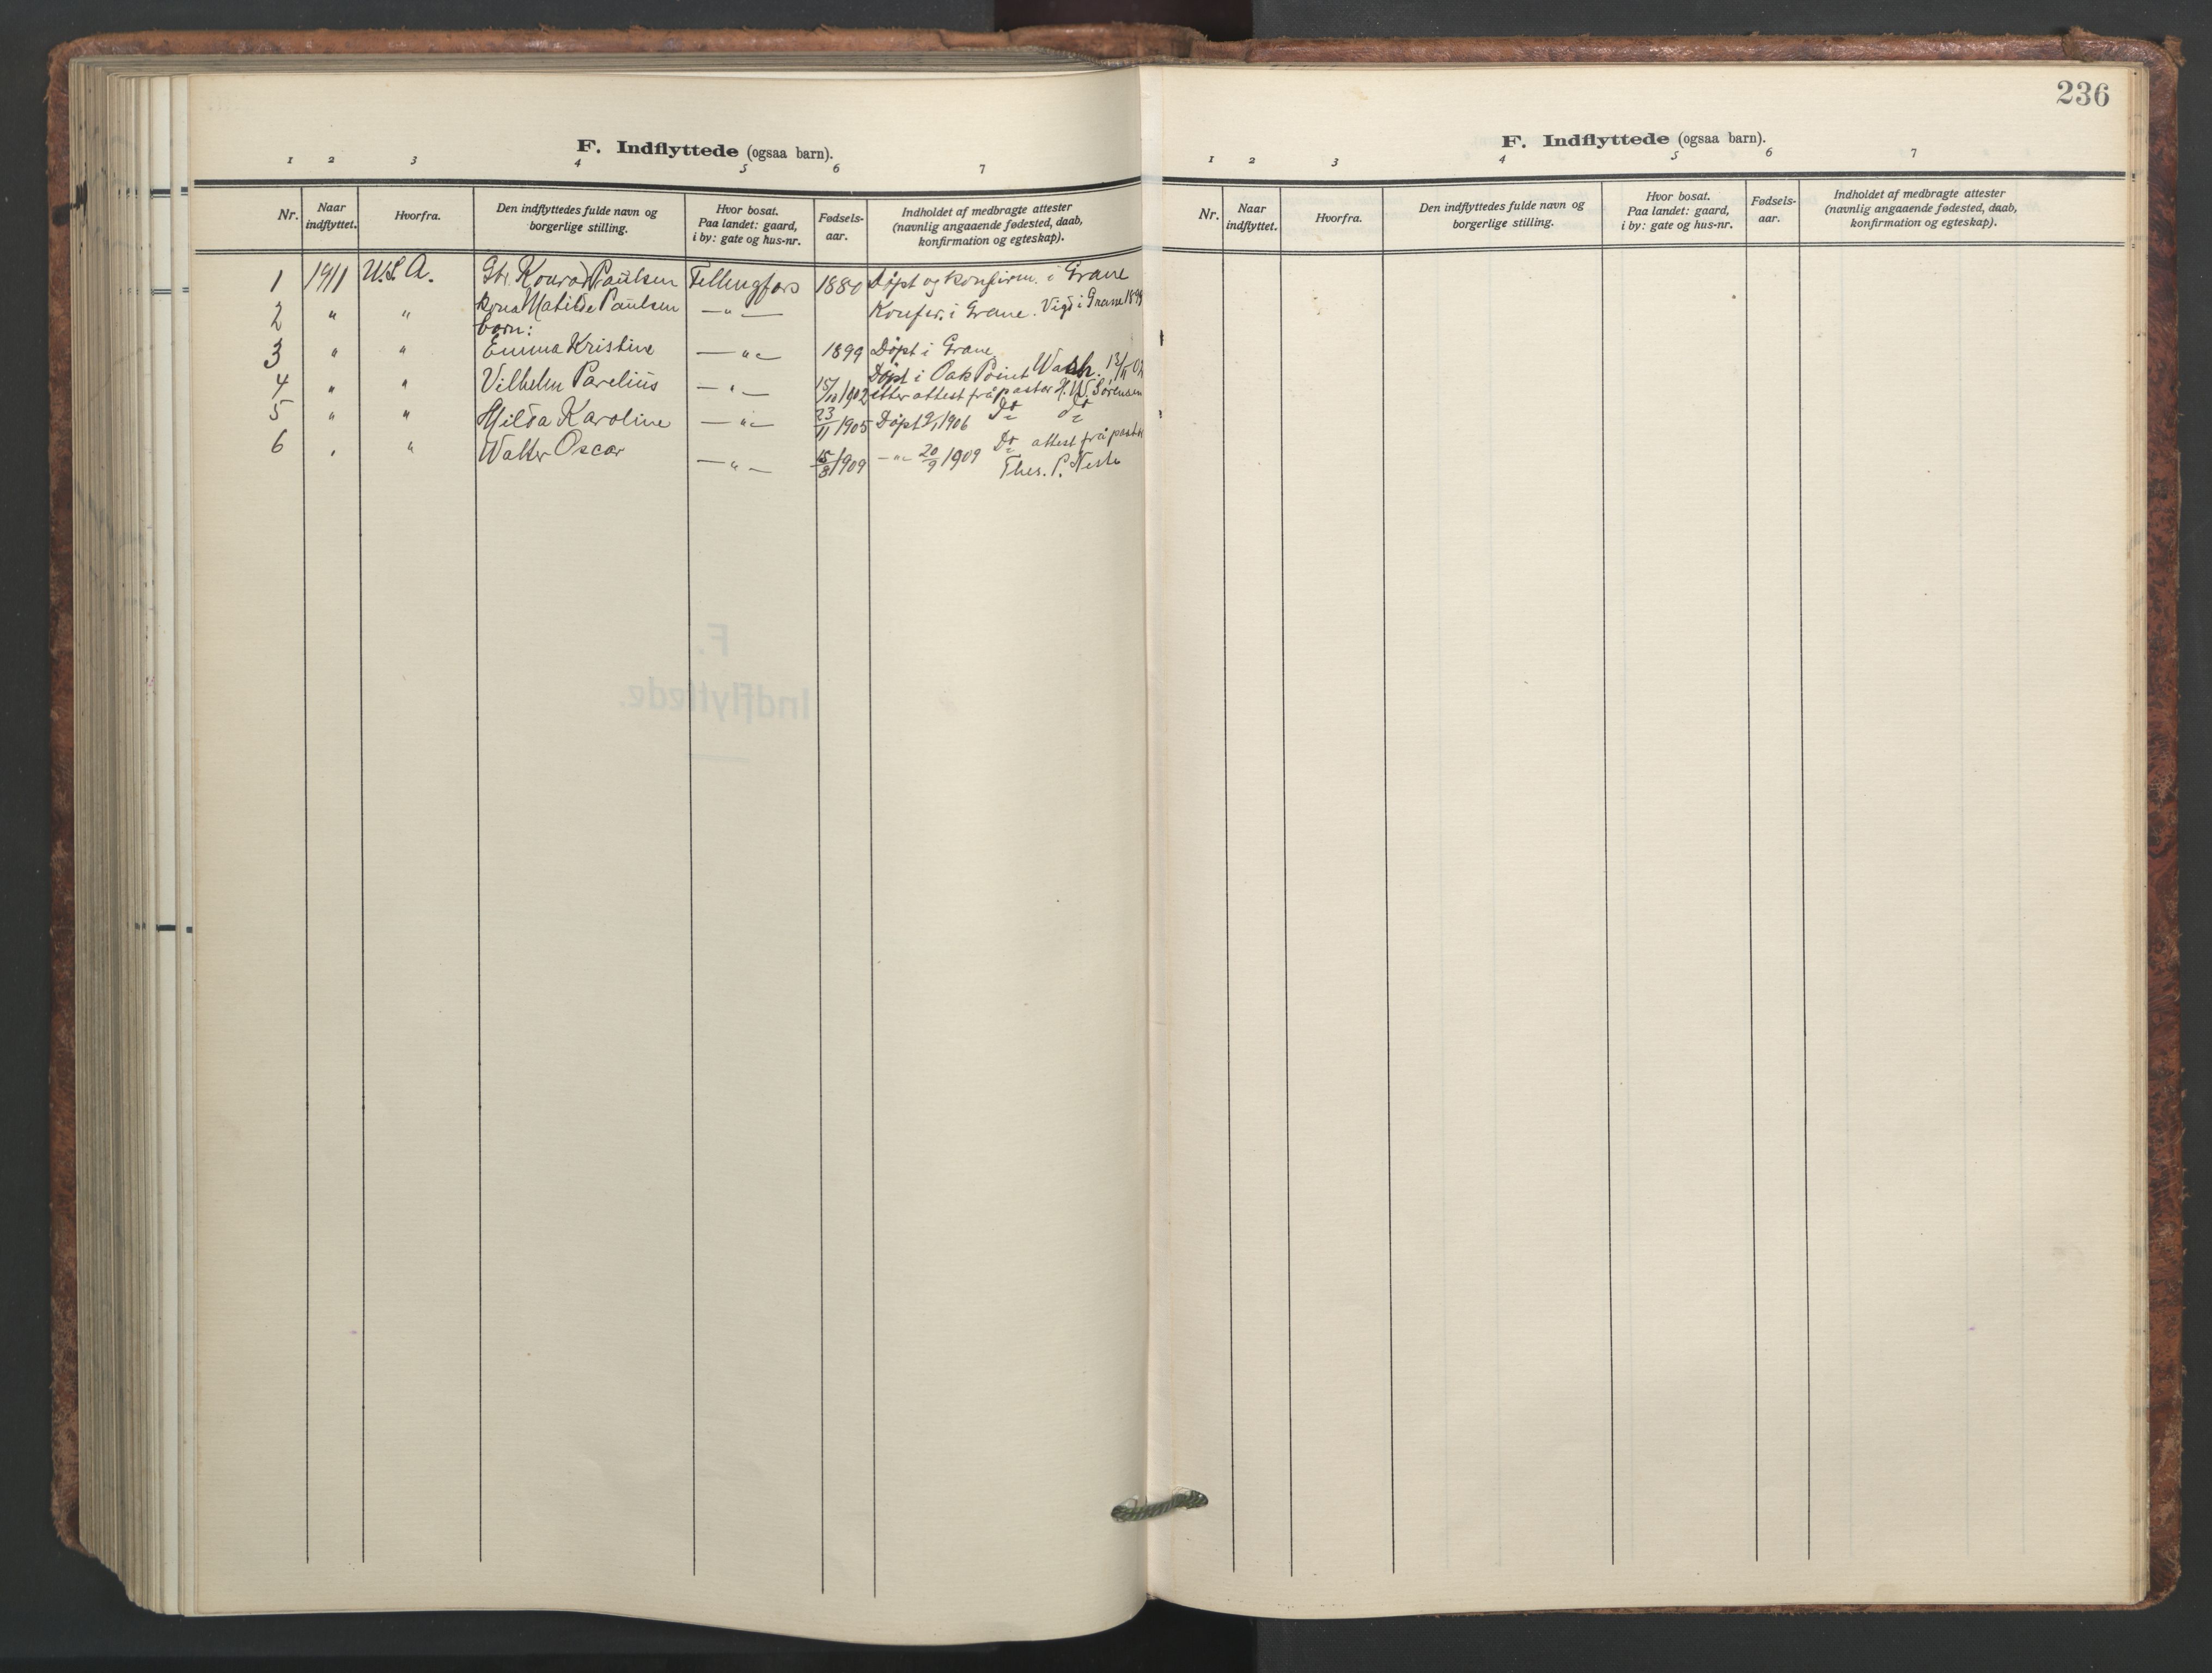 F. Indflyttede (ogsaa barn).
1 2 3 4 5 6 7
Nr. Naar indflyttet. Hvorfra. Den indflyttedes fulde navn og borgerlige stilling. Hvor bosat. Paa landet: gaard, i by: gate og hus-nr. Fødsels-aar. Indholdet af medbragte attester (navnlig angaaende fødested, daab, konfirmation og egteskap).
1 1911 U.S.A. Gbr. Konrad Paulsen Fellingfors 1880 Døpt og konfirm. i Grane
2 " " kona Matilde Paulsen —"— Konfir. i Grane. Vigd i Grane 1899
born:
3 " " Emma Kristine —"— 1899 Døpt i Grane
4 " " Vilhelm Parelius —"— 15/10 1902 Døpt i Oak Point Wash. 13/11 02
etter attest frå pastor H. W. Sørensen
5 " " Hilda Karoline —"— 23/11 1905 Døpt 9/1 1906 Do do
6 " " Walter Oscar —"— 15/8 1909 —"— 20/9 1909 Do attest frå pastor
Thes. P. Neste
236
F. Indflyttede (ogsaa barn).
1 2 3 4 5 6 7
Nr. Naar indflyttet. Hvorfra. Den indflyttedes fulde navn og borgerlige stilling. Hvor bosat. Paa landet: gaard, i by: gate og hus-nr. Fødsels-aar. Indholdet af medbragte attester (navnlig angaaende fødested, daab, konfirmation og egteskap).